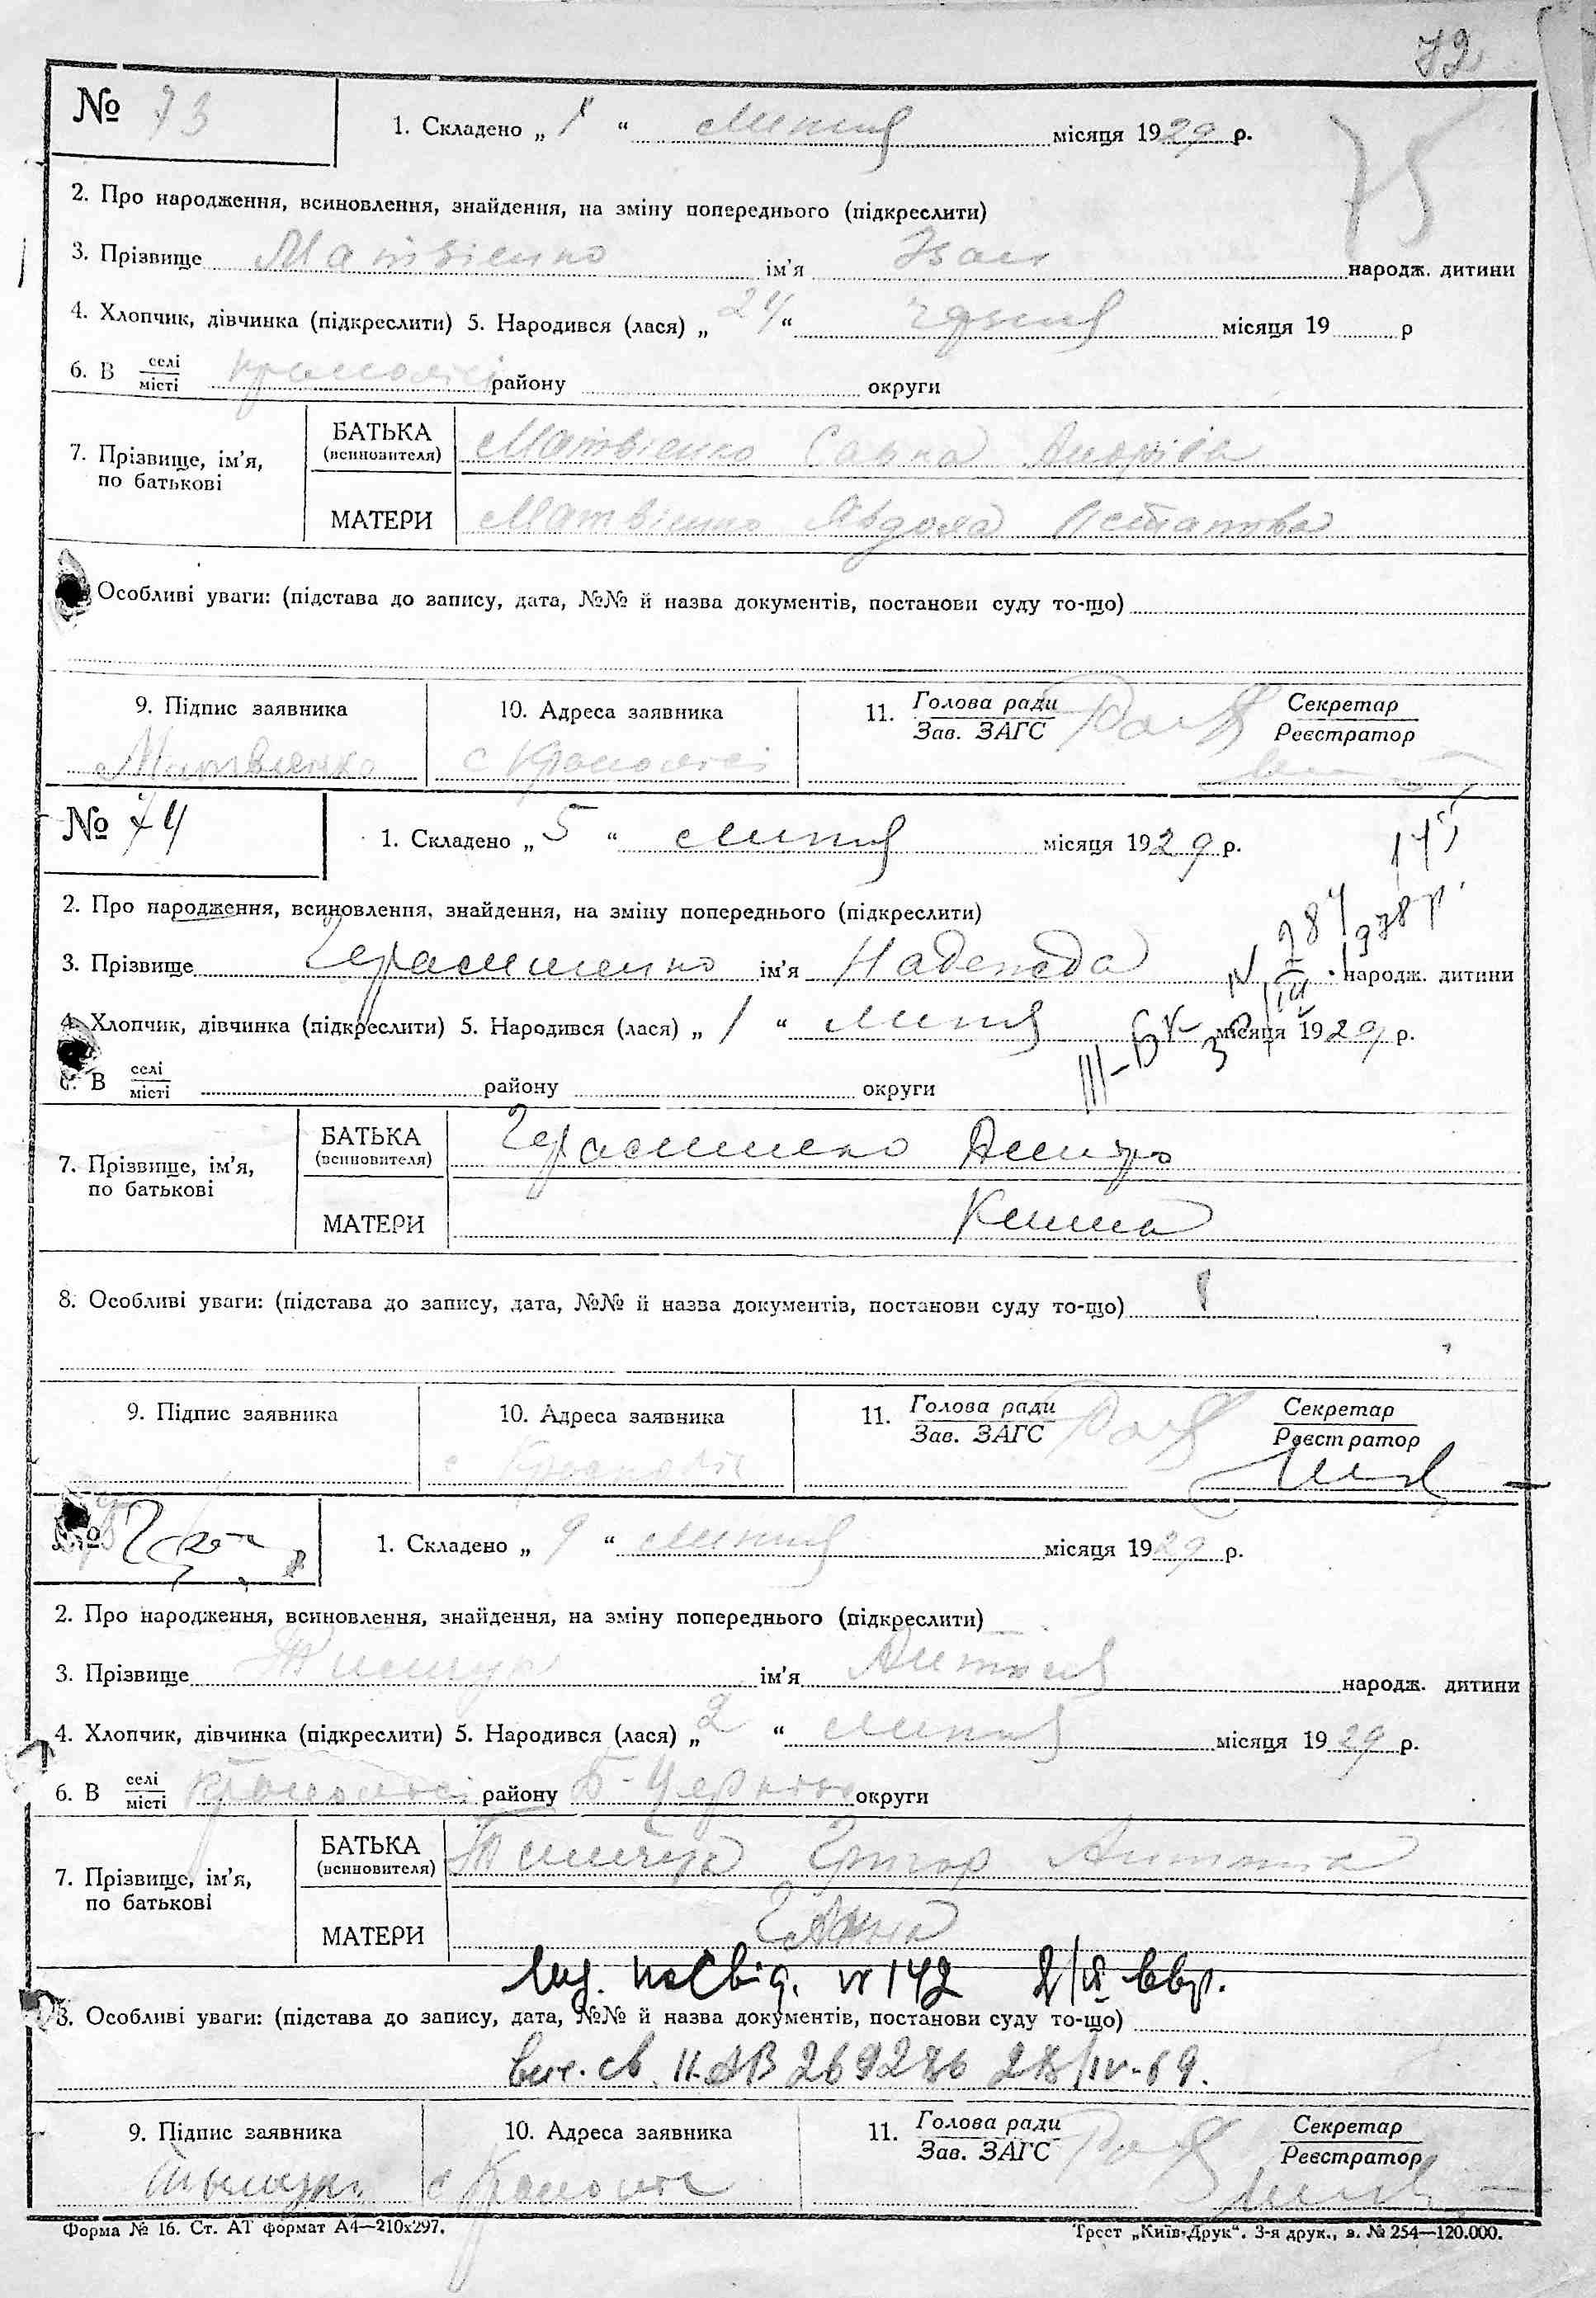 72
№ 73
1. Складено „ 1 “ липня місяця 1929 р.
75
2. Про народження, всиновлення, знайдення, на зміну попереднього (підкреслити)
3. Прізвище Матвієнко ім’я Іван народж. дитини
4. Хлопчик, дівчинка (підкреслити) 5. Народився (лася) „ “ червня місяця 19 р
6. В селі місті району округи
7. Прізвище, ім’я, по батькові
БАТЬКА (всиновителя) Матвієнко Савка Андріїв
МАТЕРИ Матвієнко Явдоха Остапова
Особливі уваги: (підстава до запису, дата, №№ й назва документів, постанови суду то-що)
9. Підпис заявника
10. Адреса заявника
11. Голова ради Зав. ЗАГС
Секретар Реєстратор
Матвієнко
№ 74
1. Складено „ 5 “ липня місяця 1929 р.
2. Про народження, всиновлення, знайдення, на зміну попереднього (підкреслити)
3. Прізвище Герасименко ім’я Надежда народж. дитини
4. Хлопчик, дівчинка (підкреслити) 5. Народився (лася) „ 1 “ липня місяця 1929 р.
6. В селі місті району округи
7. Прізвище, ім’я, по батькові
БАТЬКА (всиновителя) Герасименко Дмитро
МАТЕРИ
8. Особливі уваги: (підстава до запису, дата, №№ й назва документів, постанови суду то-що)
9. Підпис заявника
10. Адреса заявника
11. Голова ради Зав. ЗАГС
Секретар Реєстратор
№
1. Складено „ 9 “ липня місяця 1929 р.
2. Про народження, всиновлення, знайдення, на зміну попереднього (підкреслити)
3. Прізвище Тимчук ім’я народж. дитини
4. Хлопчик, дівчинка (підкреслити) 5. Народився (лася) „ 2 “ липня місяця 1929 р.
6. В селі місті району Б-Церków округи
7. Прізвище, ім’я, по батькові
БАТЬКА (всиновителя) Тимчук Григор Антонів
МАТЕРИ Ганна
вид. посвід. № 142
8. Особливі уваги: (підстава до запису, дата, №№ й назва документів, постанови суду то-що)
св. II-АВ 269286 28/IV-69.
9. Підпис заявника
10. Адреса заявника
11. Голова ради Зав. ЗАГС
Секретар Реєстратор
Форма № 16. Ст. АТ формат А4—210х297.
Трест „Київ-Друк“. 3-я друк., з. № 254—120.000.